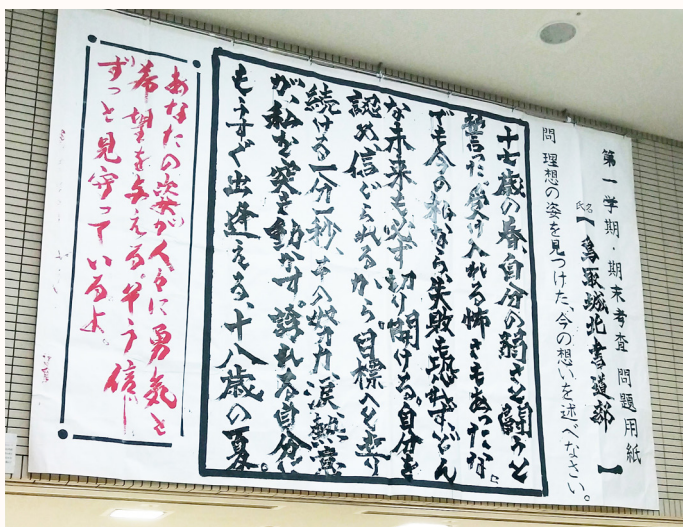 第一学期・期末考査 問題用紙
氏名【鳥取城北書道部】
問 理想の姿を見つけた、今の想いを述べなさい。
十七歳の春、自分の弱さと闘うと
誓った。受け入れる怖さもあったな。
でも今の私なら失敗も恐れず、どん
な未来も必ず切り開ける。自分を
認め信じられるから目標へと走り
続ける。一分一秒、その努力、涙、熱意
が、私を突き動かす。誇れる自分に
もうすぐ出逢える、十八歳の夏。
あなたの姿が人々に勇気と
希望を与える。そう信じ
ずっと見守っているよ。